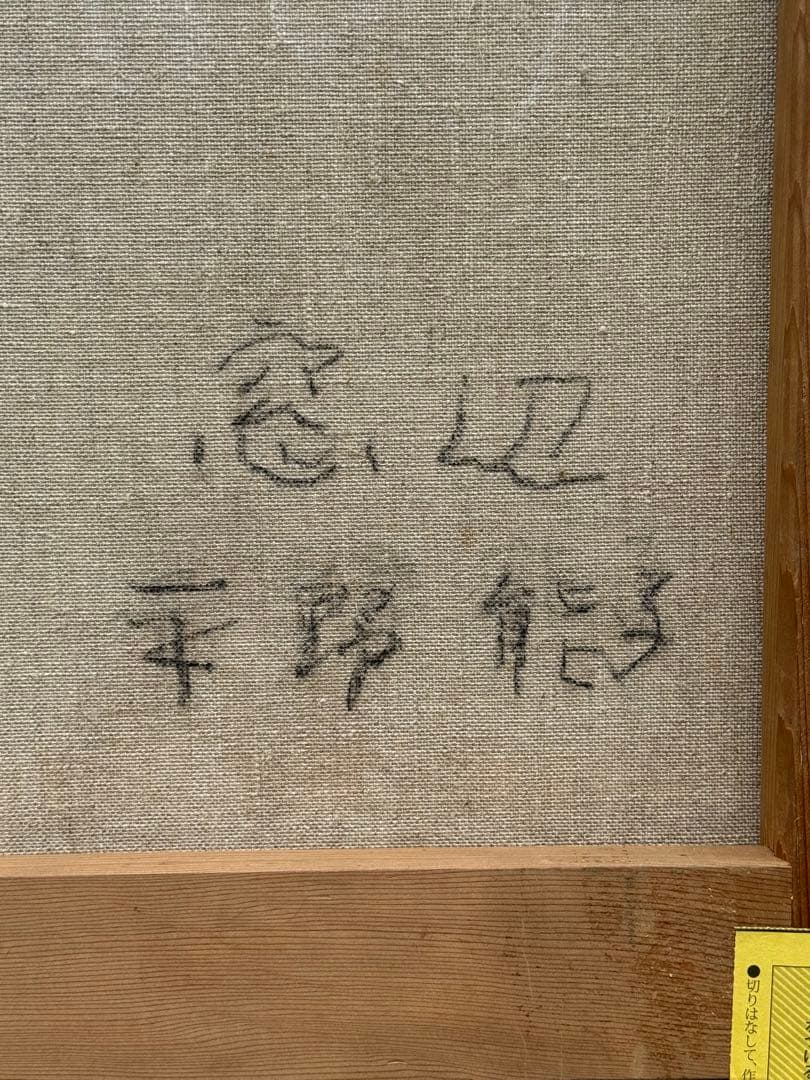 窓辺
平野能子
●切りはなして、作